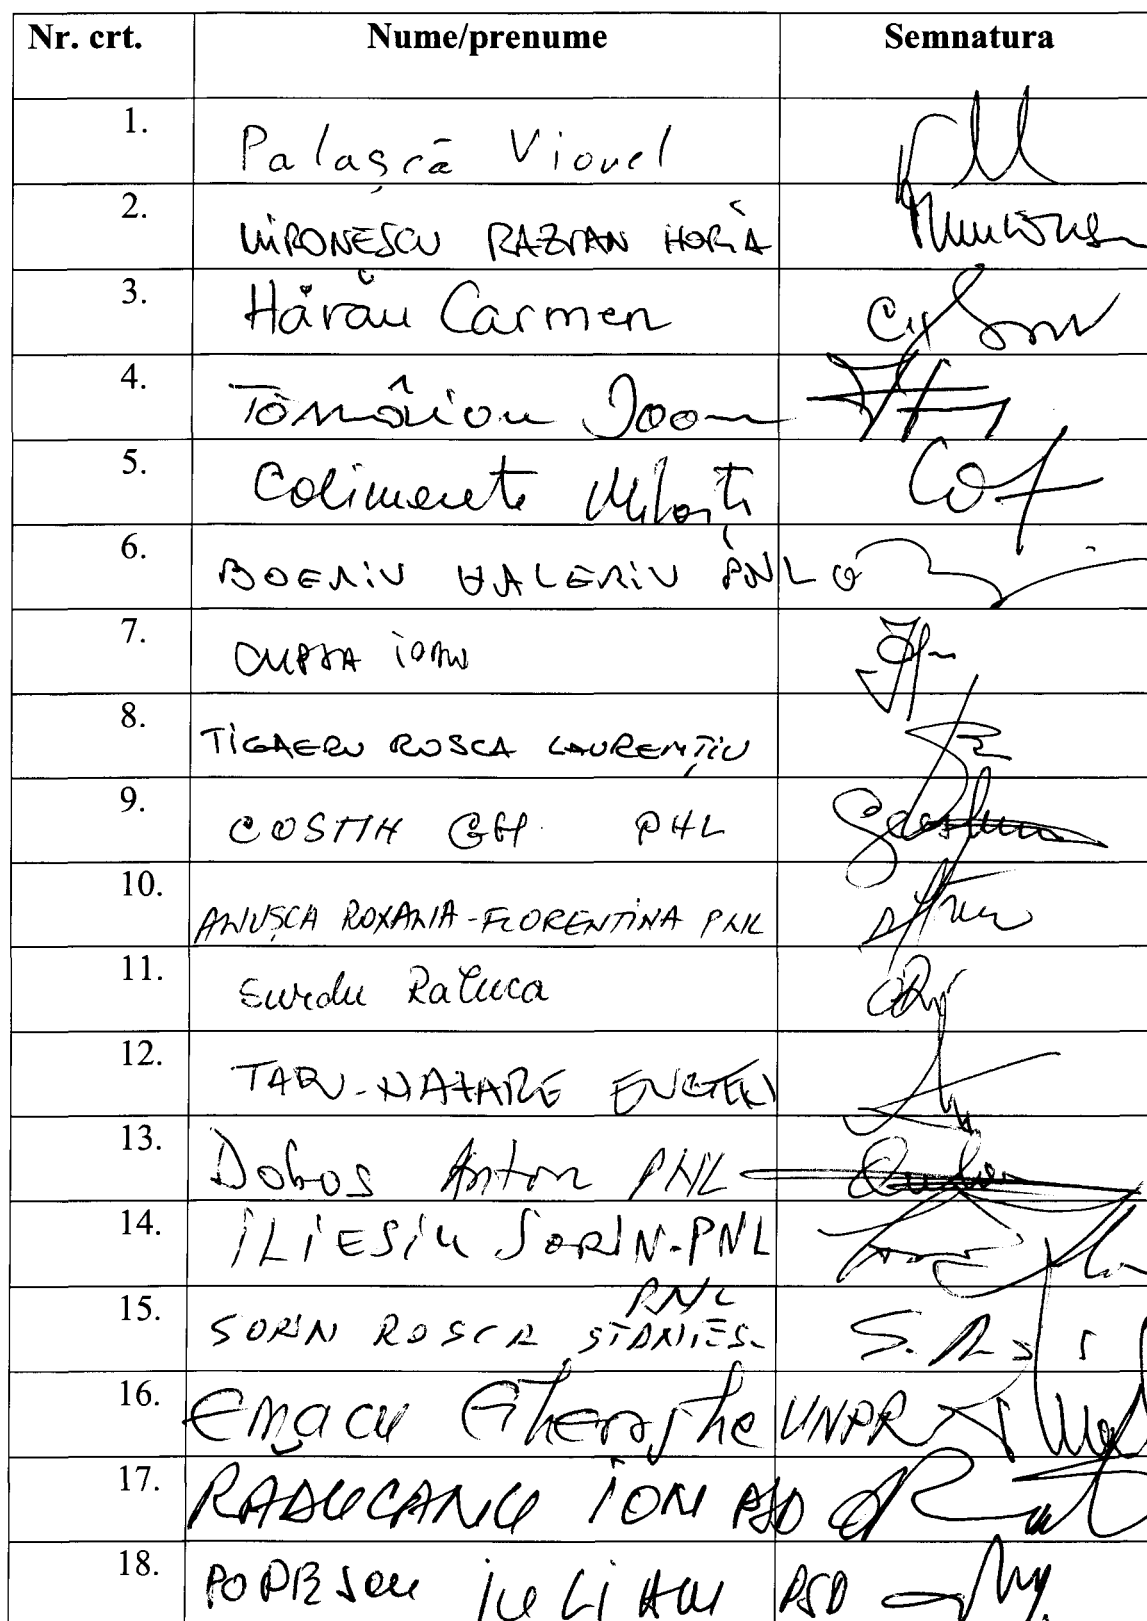 Nr. crt. Nume/prenume Semnatura
1. Palașcă Viorel
2. MIRONESCU RAZVAN HORIA
3. Hărău Carmen
4. Tămâian Ioan
5. Calimente Mihăiță
6. BOERIU VALERIU PNL
7. CUPȘA IOAN
8. TIGAERU ROSCA LAURENȚIU
9. COSTIN GH. PNL
10. ANUȘCA ROXANA-FLORENTINA PNL
11. Surdu Raluca
12. NAZARE
13. Dobos Anton PNL
14. ILIESIU SORIN-PNL
15. SORIN ROSCA STANES. PNL
16. Emacu Gheorghe UNPR
17. RADUCANU ION PSD
18. POPESCU IULIAN PSD